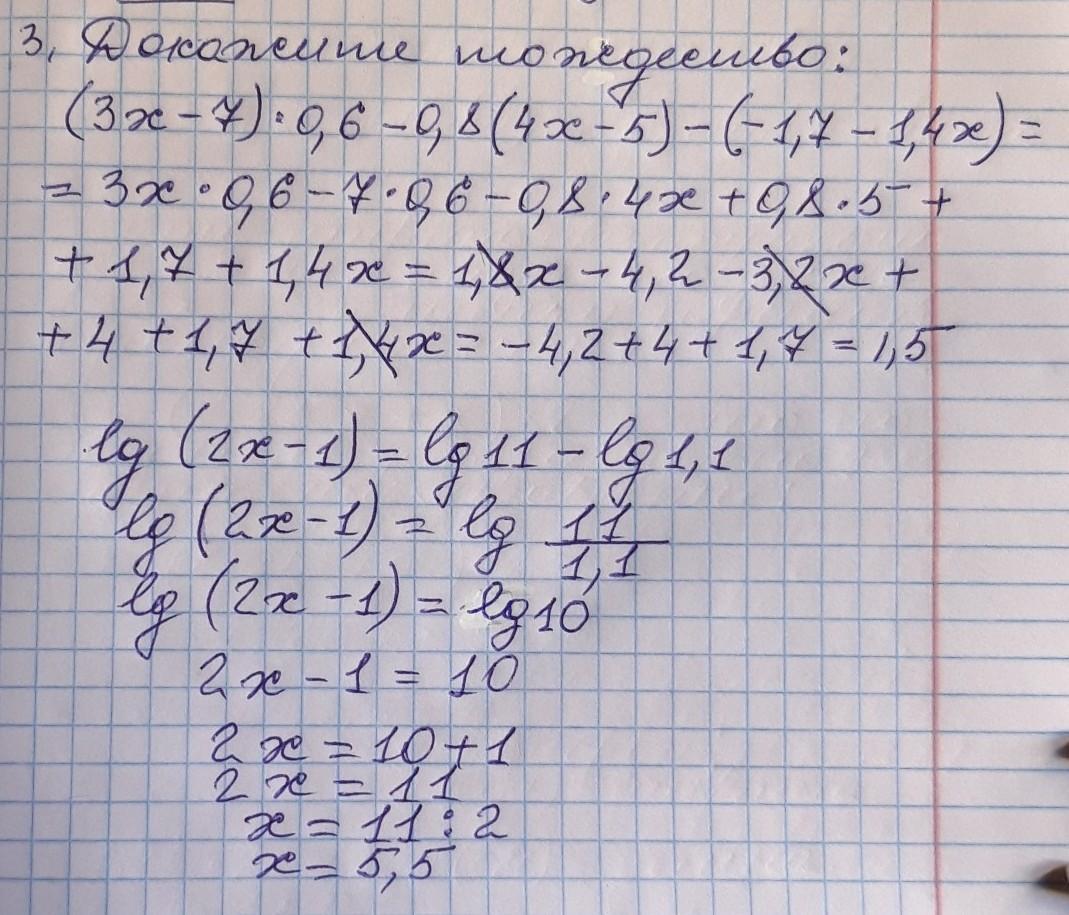 3, Докажите тождество:
(3x-7)·0,6-0,8(4x-5)-(-1,7-1,4x)=
=3x·0,6-7·0,6-0,8·4x+0,8·5+
+1,7+1,4x=1,8x-4,2-3,2x+
+4+1,7+1,4x=-4,2+4+1,7=1,5
lg(2x-1)=lg11-lg1,1
lg(2x-1)=lg 11/1,1
lg(2x-1)=lg10
2x-1=10
2x=10+1
2x=11
x=11:2
x=5,5